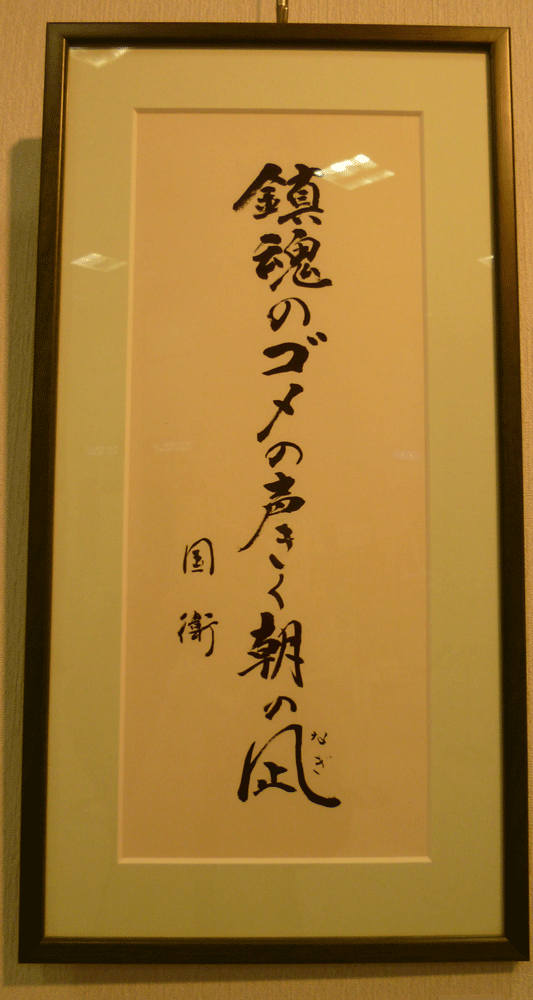 鎮魂のゴメの声きく朝の凪
なぎ
国衛